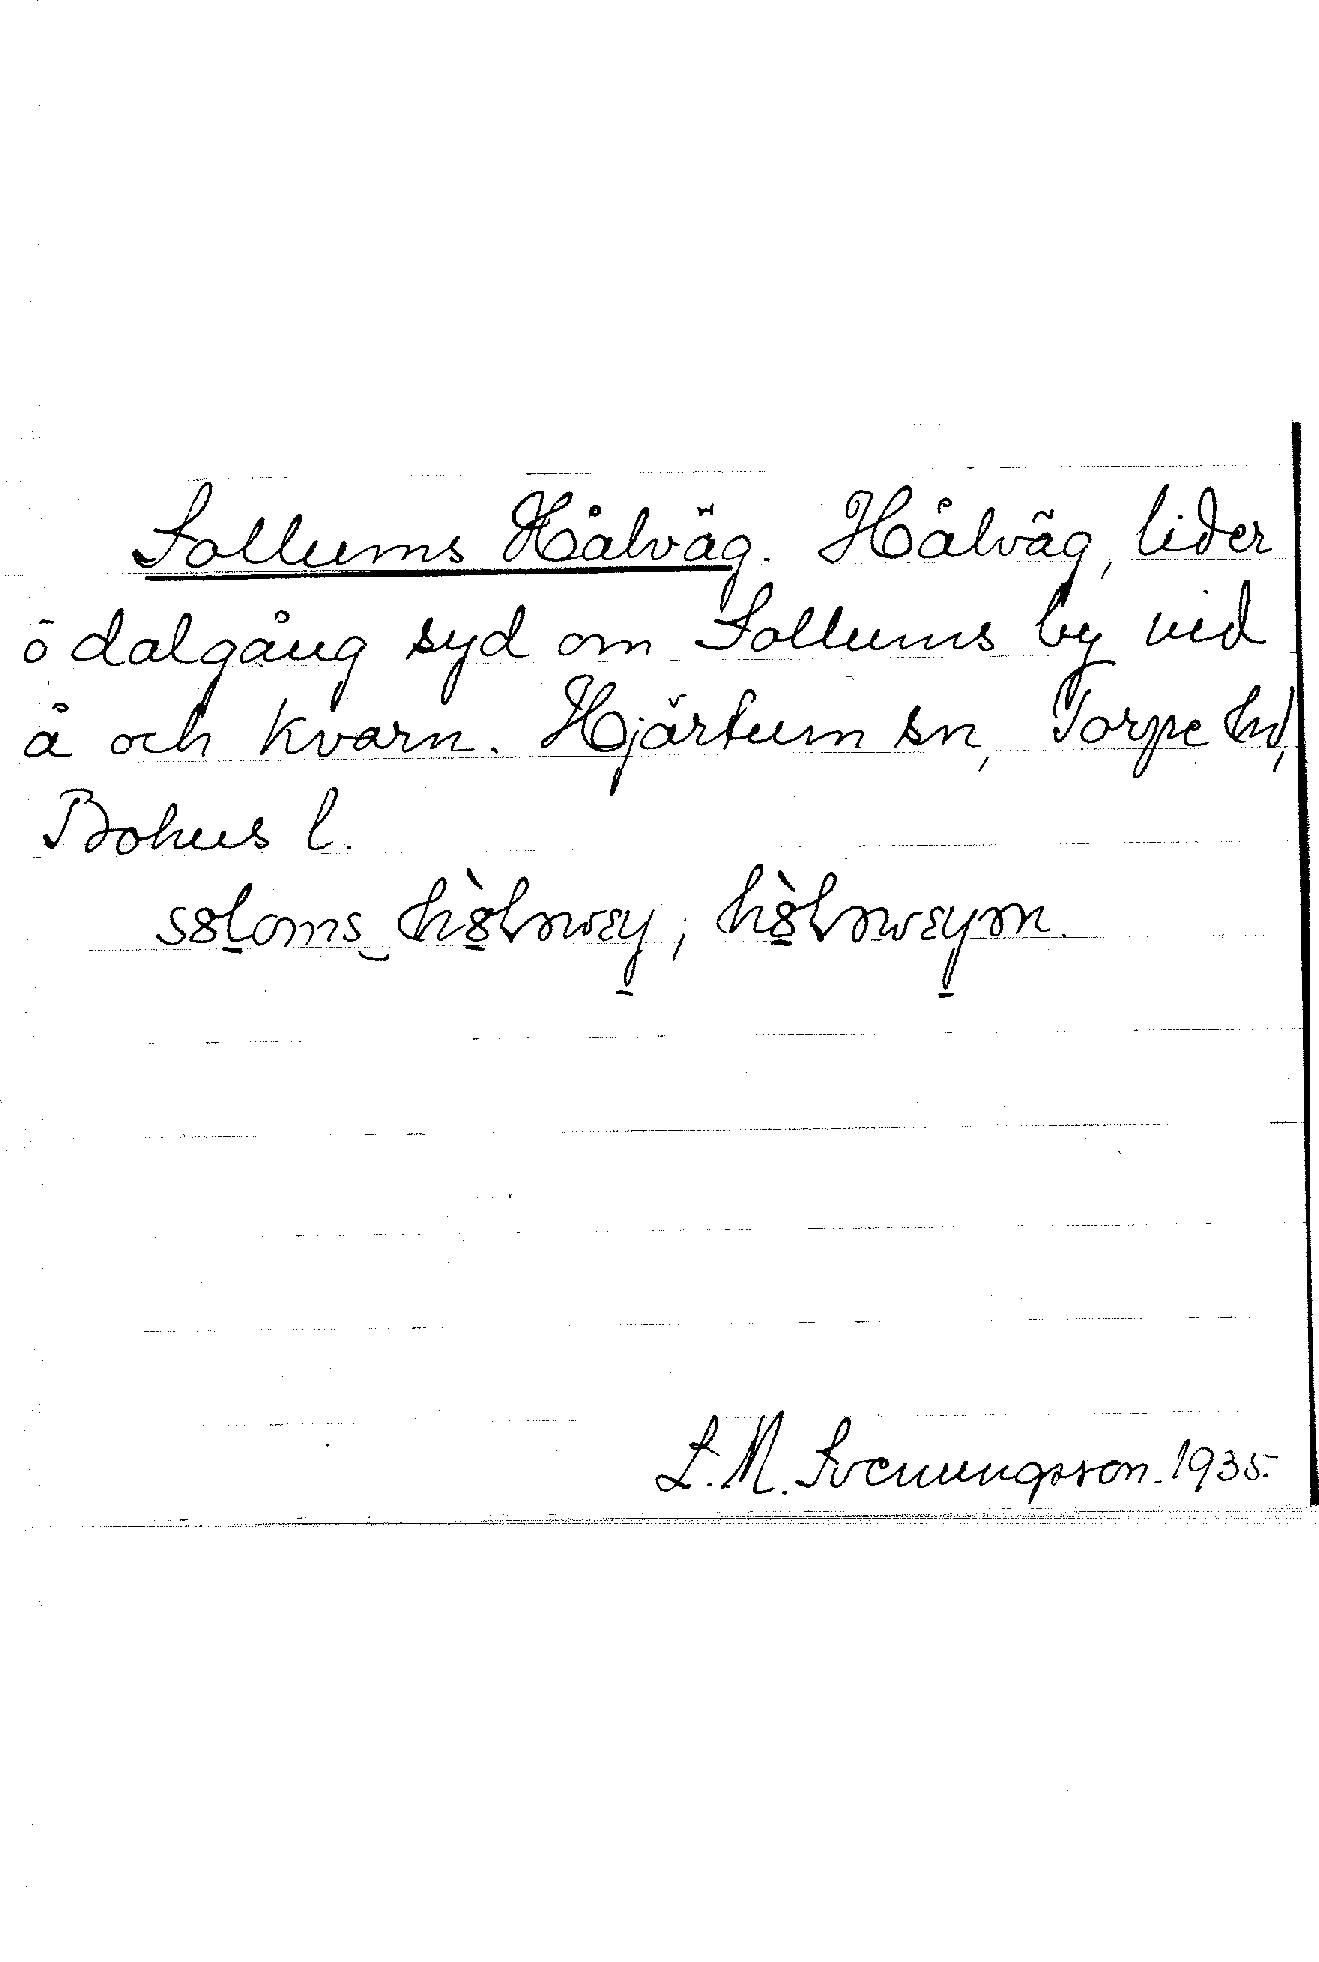 Sollums Hålväg. Hålväg, lider
ö dalgång syd om Sollums by vid
å och kvarn. Hjärtum sn, Torpe hd,
Bohus l.
L. M. Svenungsson. 1935.